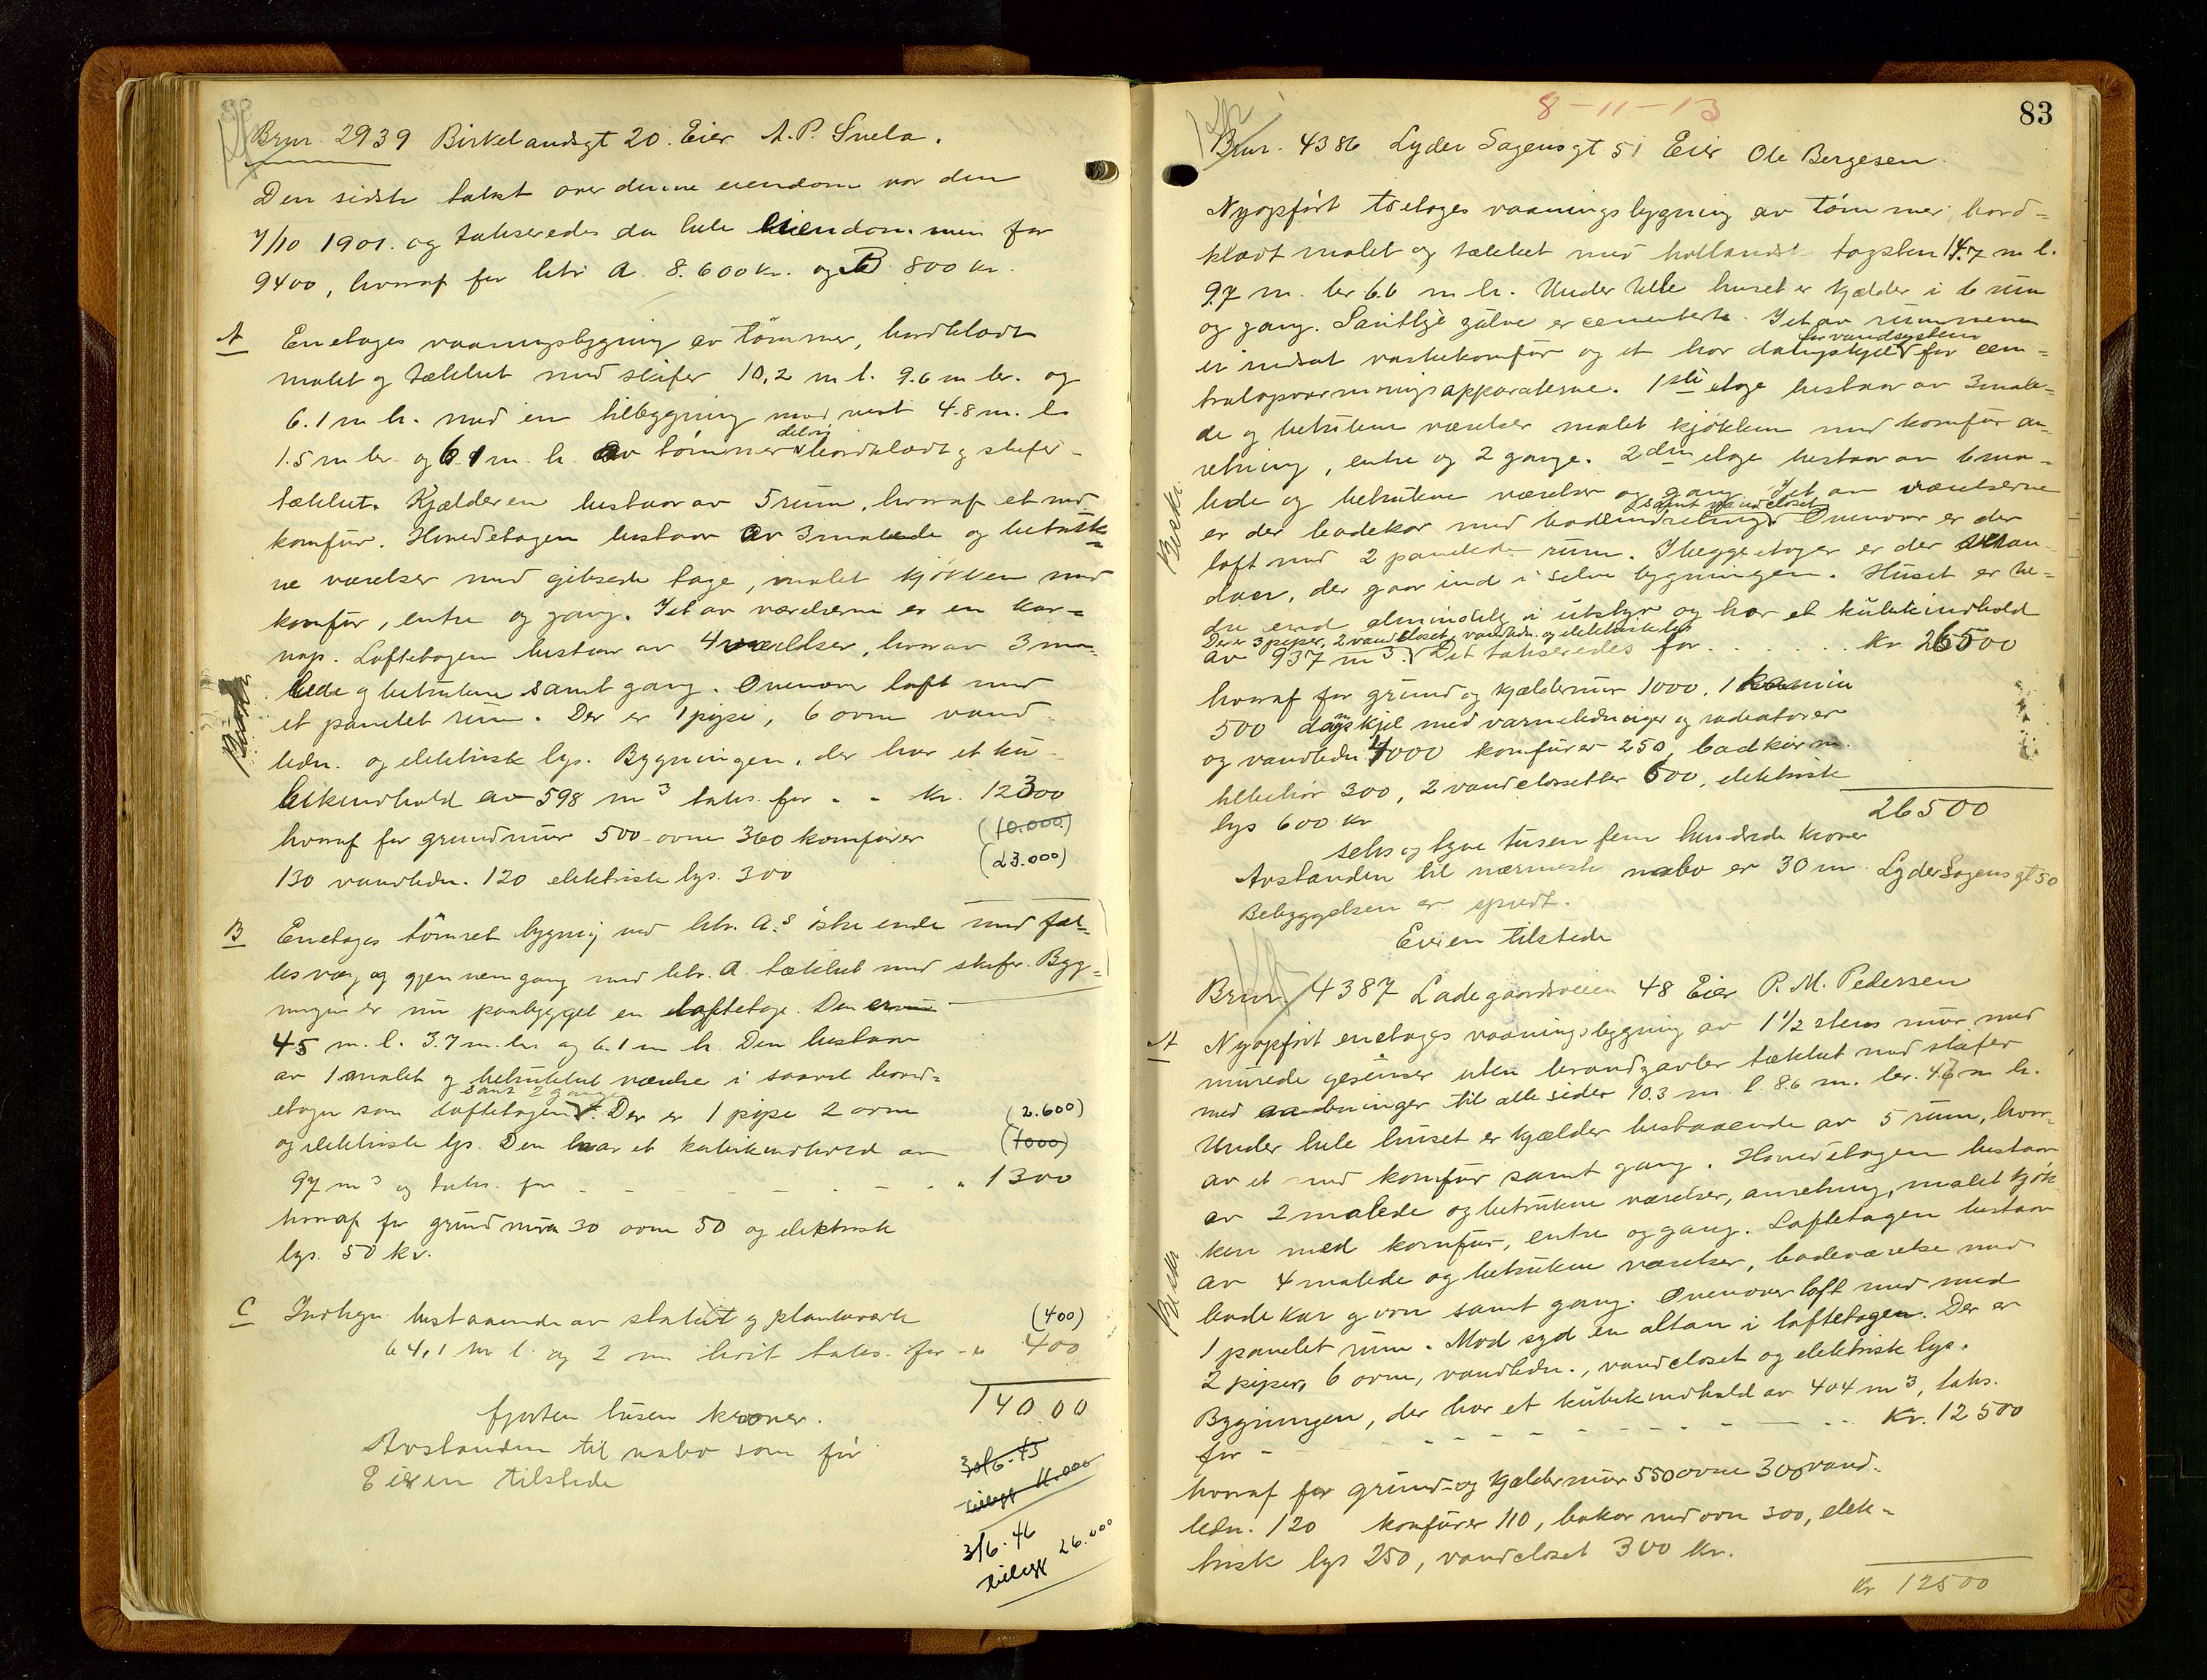 Brnr. 2939 Birkelandsgt 20. Eier A. P. Suela.
Den sidste takst over denne eiendom var den
7/10 1901. og takseredes da hele eiendommen for
9400, hvoraf for litr A. 8.600 kr. og B 800 kr.
A Enetages vaaningsbygning av tömmer, bordklædt
malet og tækket med skifer 10,2 m l. 9.6 m br. og
6.1 m h. med en tilbygning mod vest 4.8 m. l.
delvis
1.5 m br og 6.1 m. h av tömmer bordklædt og skifer-
tækket. Kjælderen bestaar av 5 rum, hvoraf et med
komfür. Hovedetagen bestaar av 3 malede og betrük-
ne værelser med gibsede tage, malet kjökken med
komfür, entre og gang. I et av værelserne er en kar-
nap. Loftetagen bestaar av 4 værelser, hvorav 3 ma-
lede og betrükne samt gang. Ovenover loft med
et panelet rüm. Der er 1 pipe, 6 ovne vand-
ledn. og elektrisk lys. Bygningen, der har et kü-
bikindhold av 598 m³ taks. for - - kr. 12300
hvoraf for grundmür 500 ovne 360 komfürer (10.000)
130 vandledn. 120 elektriske lys. 300 (23.000)
B Enetages tömret bygning ved litr. A.s östre ende med fæl-
les væg og gjennemgang med litr. A. tækket med skifer. Byg-
ningen er nu paabygget en loftetage. Den er nu
4.5 m. l. 3.7 m. br og 6.1 m h. Den bestaar
av 1 malet og betrükket værelse i saavel hoved-
samt 2 gange
etagen som loftetagen. Der er 1 pipe 2 ovne (2.600)
og elektriske lys. Den har et kubikindhold av (1000)
97 m³ og taks. for - - - - - - " 1300
hvoraf for grundmür 30 ovne 50 og elektrisk
lys. 50 kr.
C Indhegn bestaaende av stakit og plankeværk (400)
64,1 m l. og 2 m höit taks. for - " 400
14000
fjorten tusen kroner.
Avstanden til nabo som för
Eieren tilstede
30/6-45
tillegg 11.000
3/6.46
tillegg 26.000
8-11-13
83
Brnr. 4386 Lyder Sagensgt 51 Eier Ole Bergesen
Nyopfört toetages vaaningsbygning av tömmer, bord-
klædt malet og tækket med hollandsk tagsten 14.7 m l.
9.7 m. br 6.6 m h. Under hele huset er kjælder i 6 rüm
og gang. Samtlige gülve er cementerte. I et av rümmene
for vandsystem
er indsat vaskekomfür og et har dampkjel for cen-
tralopvarmningsapparaterne. 1ste etage bestaar av 3 male-
de og betrükne værelser malet kjökken med komfür an-
retning, entre og 2 gange. 2den etage bestaar av 6 ma-
lede og betrükne værelser og gang. I et av værelserne
samt vandcloset
er der badekar med badeindretning. Ovenover er der
loft med 2 panelede rüm. I begge etager er der veran-
daer, der gaar ind i selve bygningen. Huset er be-
dre end almindelig i utstyr og har et kübikindhold
Der er 3 piper, 2 vandcloset, vandledn. og elektrisk lys
av 937 m³. Det takseredes for . . . . . . kr 26500
hvoraf for grund og kjældermür 1000, 1 kamin
500 dampkjel med varmeledninger og radiatorer
og vandledn 4000 komfürer 250, badkar m.
tilbehör 300, 2 vandclosetter 600, elektrisk
lys 600 kr 26500
seks og tyve tusen fem hundrede kroner
Avstanden til nærmeste nabo er 30 m Lyder Sagens gt 50
Bebyggelsen er spredt.
Eieren tilstede
Brnr 4387 Ladegaardsveien 48 Eier P. M. Pedersen
A Nyopfört enetages vaaningsbygning av 1 1/2 stens mür med
mürede gesimser uten brandgavler tækket med skifer
med aabninger til alle sider 10.3 m l. 8.6 m. br. 4.6 m h.
Under hele huset er kjælder bestaaende av 5 rüm, hvor-
av et med komfür samt gang. Hovedetagen bestaar
av 2 malede og betrükne værelser, anretning, malet kjök-
ken med komfür, entre og gang. Loftetagen bestaar
av 4 malede og betrükne værelser, badeværelse med
badekar og ovn samt gang. Ovenover loft med med
1 panelet rüm. Mod syd en altan i loftetagen. Der er
2 piper, 6 ovne, vandledn., vandcloset og elektriske lys.
Bygningen, der har et kübikindhold av 404 m³, taks.
for - - - - - - - - - Kr. 12500
hvoraf for grund- og kjældermür 550 ovne 300 vand-
ledn. 120 komfürer 110, bakar med ovn 300, elek-
trisk lys 250, vandcloset 300 kr.
Kr 12500
Beskr.
Beskr.
Beskr.